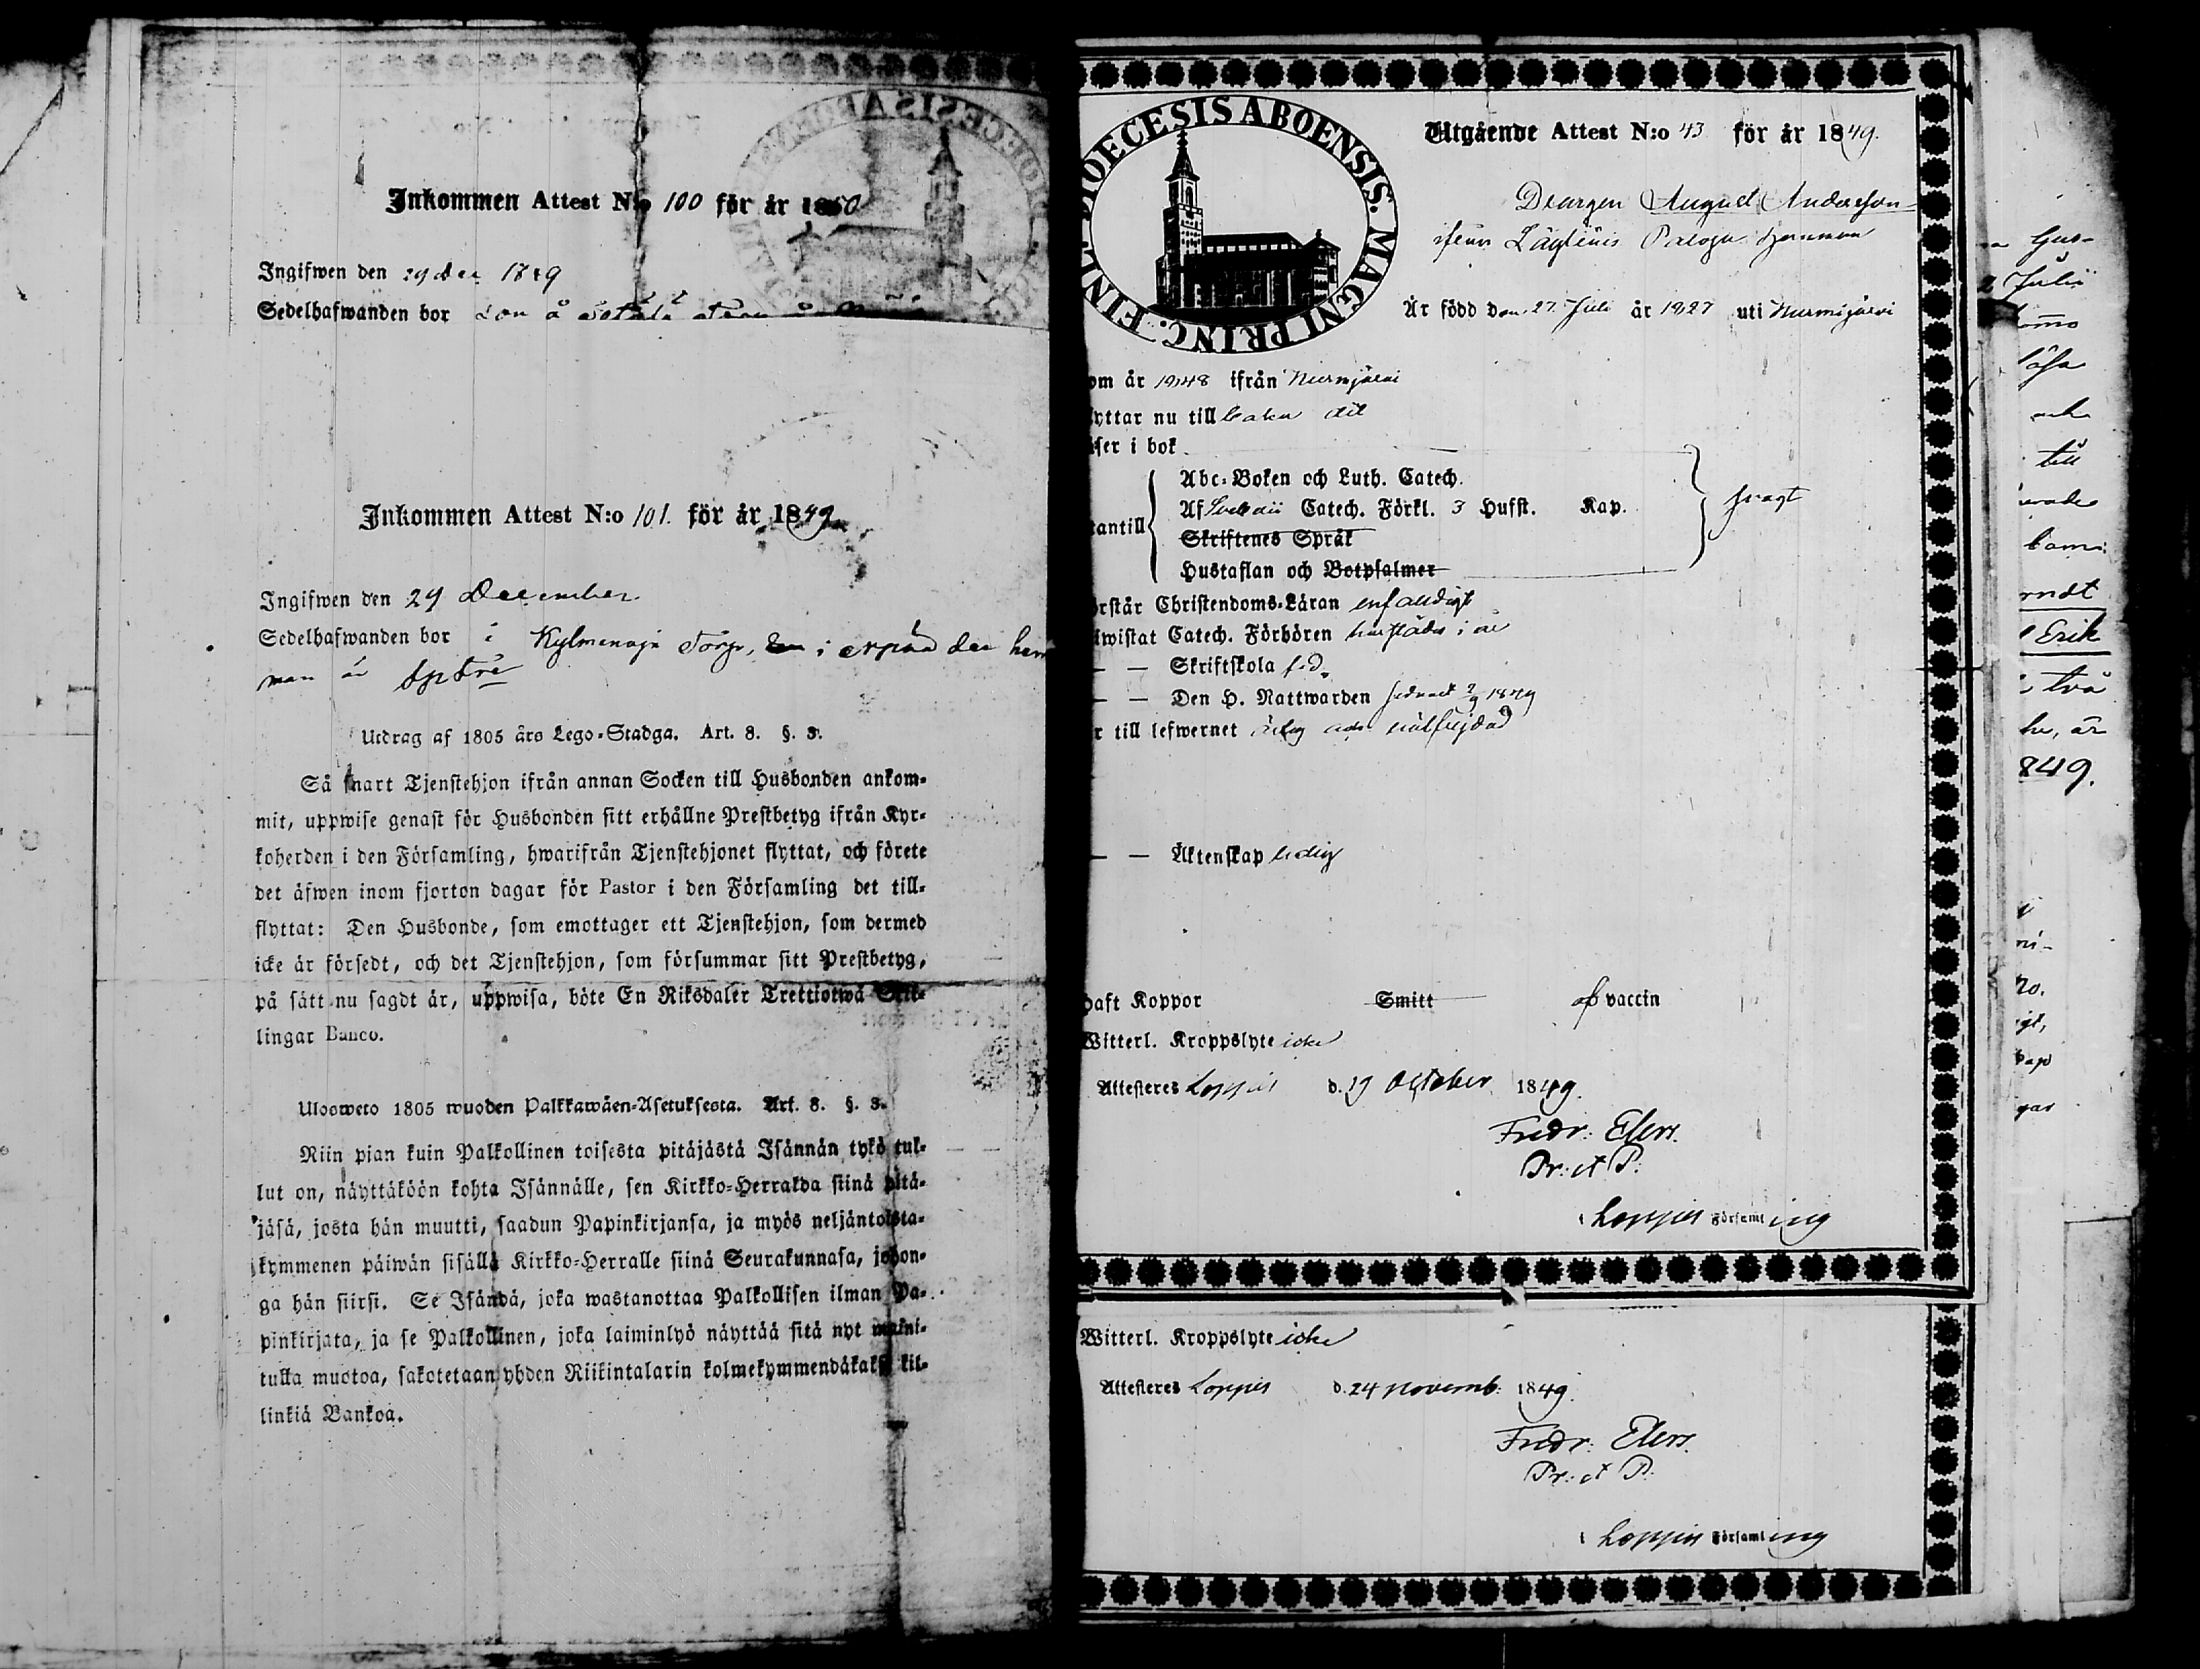 Inkommen Attest N:o 100 för år 1850
Ingifwen den 29 Dec 1849
Sedelhafwanden bor
Inkommen Attest N:o 101. för år 1849.
Ingifwen den 29 December
Sedelhafwanden bor i Kylmenoja Torp,
man är
Utdrag af 1805 års Lego-Stadga. Art. 8. §. 3.
Så snart Tjenstehjon ifrån annan Socken till Husbonden ankom-
mit, uppwise genast för Husbonden sitt erhållne Prestbetyg ifrån Kyr-
koherden i den Församling, hwarifrån Tjenstehjonet flyttat, och förete
det äfwen inom fjorton dagar för Pastor i den Församling det till-
flyttat: Den Husbonde, som emottager ett Tjenstehjon, som dermed
icke är försedt, och det Tjenstehjon, som försummar sitt Prestbetyg,
på sätt nu sagdt är, uppwisa, böte En Riksdaler Trettiotwå Skil-
lingar Banco.
Ulosweto 1805 wuoden Palkkawäen-Asetuksesta. Art. 8. §. 3.
Niin pian kuin Palkollinen toisesta pitäjästä Isännän tykö tul-
lut on, näyttäköön kohta Isännälle, sen Kirkko-Herralda siinä pitä-
jäsä, josta hän muutti, saadun Papinkirjansa, ja myös neljäntoista-
kymmenen päiwän sisällä Kirkko-Herralle siinä Seurakunnasa, johon-
ga hän siirsi. Se Isändä, joka wastanottaa Palkollisen ilman Pa-
pinkirjata, ja se Palkollinen, joka laiminlyö näyttää sitä nyt maini-
tulla muotoa, sakotetaan yhden Riikintalarin kolmekymmendäkaksi kil-
linkiä Bankoa.
DIOECESIS ABOENSIS. MAGNI PRINC. FINL.
Utgående Attest N:o 43 för år 1849.
Drängen August Andersson
ifrån Läyliäis
Är född den 27 Juli år 1827 uti Nurmijärvi
om år 1848 ifrån Nurmijärvi
yttar nu till baka dit
äser i bok
Abc-Boken och Luth. Catech.
Af Svebilii Catech. Förkl. 3 Hufst. Kap.
tantill
Skriftenes Språk
Hustaflan och Botpsalmer
svagt
rstår Christendoms-Läran enfaldigt
iwistat Catech. Förhören
— — Skriftskola
— — Den H. Nattwarden sednast 2/9 1849
r till lefwernet ärlig och
— — Äktenskap ledig
haft Koppor Smitt af vaccin
Witterl. Kroppslyte icke
Attesteres Loppis d. 19 October 1849.
Fredr: Elers.
Pr: et P:
i Loppis Församling
Witterl. Kroppslyte icke
Attesteres Loppis d. 24 Novemb: 1849.
Fredr: Elers.
Pr: et P:
i Loppis Församling
Julii
till
Erik
två
849.